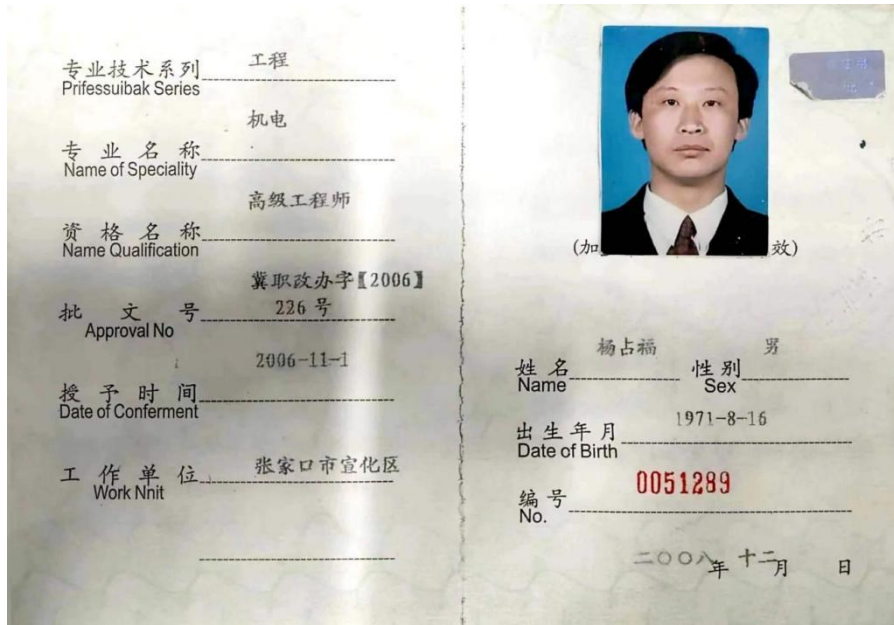 专业技术系列 工程
Prifessuibak Series
机电
专业名称
Name of Speciality
高级工程师
资格名称
Name Qualification
冀职改办字【2006】
批文号 226 号
Approval No
2006-11-1
授予时间
Date of Conferment
工作单位 张家口市宣化区
Work Nnit
(加 效)
姓名 杨占福 性别 男
Name Sex
出生年月 1971-8-16
Date of Birth
编号 0051289
No.
二〇〇八年 十二月 日